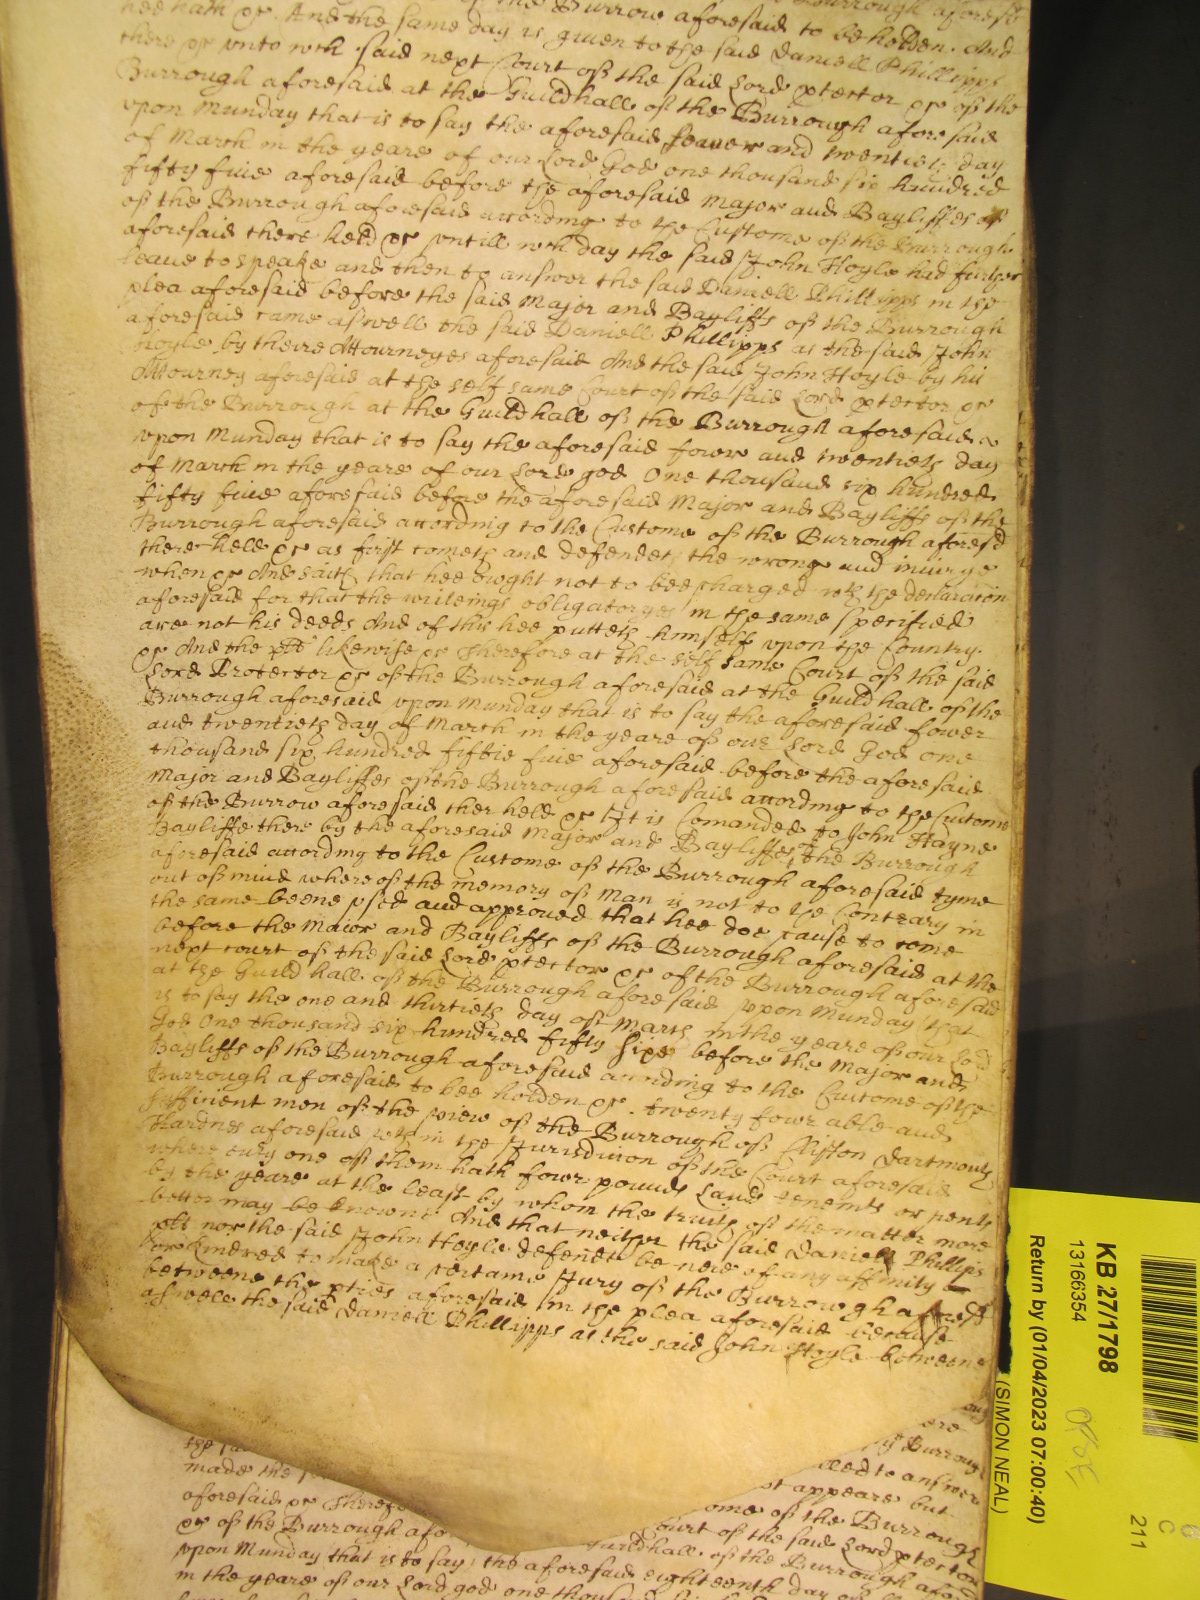 of the Burrough aforesd
hee hath &c. And the same day is given to the said Daniell Phillipps
of the Burrow aforesaid to be holden. And
there &c unto wch said next Court of the said Lord ptector &c of the
Burrough aforesaid at the Guildhall of the Burrough aforesaid
upon Munday that is to say the aforesaid fower and twentieth day
of March in the yeare of our Lord God one thousand six hundred
fifty five aforesaid before the aforesaid Major and Bayliffes
of the Burrough aforesaid according to the Custome of the Burrough
aforesaid there held &c untill wch day the said John Hoyle had further
leave to speake and then to answer the said Daniell Phillipps in the
plea aforesaid before the said Major and Bayliffs of the Burrough
aforesaid came aswell the said Daniell Phillipps as the said John
Hoyle by theire Attourneyes aforesaid And the said John Hoyle by his
Attourney aforesaid at the self same Court of the said Lord ptector &c
of the Burrough at the Guildhall of the Burrough aforesaid
upon Munday that is to say the aforesaid fower and twentieth day
of March in the yeare of our Lord god One thousand six hundred
fifty five aforesaid before the aforesaid Major and Bayliffs of the
Burrough aforesaid according to the Custome of the Burrough aforesd
there held &c as first cometh and defendeth the wrong and iniurye
when &c And saith that hee ought not to bee charged wth the declaracion
aforesaid for that the writeings obligatoryes in the same specified
are not his deeds And of this hee putteth himself upon the Country.
&c And the plt likewise &c Therefore at the self same Court of the said
Lord Protector &c of the Burrough aforesaid at the Guildhall of the
Burrough aforesaid upon Munday that is to say the aforesaid fower
and twentieth day of March in the yeare of our Lord God one
thousand six hundred fiftie five aforesaid before the aforesaid
Major and Bayliffes of the Burrough aforesaid according to the Custome
of the Burrow aforesaid ther held &c It is Comanded to John Hayne
Bayliffe there by the aforesaid Major and Bayliffes of the Burrough
aforesaid according to the Custome of the Burrough aforesaid tyme
out of mind whereof the memory of Man is not to the Contrary in
the same beene used and approved that hee doe cause to come
before the Maior and Bayliffs of the Burrough aforesaid at the
next court of the said Lord ptector &c of the Burrough aforesaid
at the Guild hall of the Burrough aforesaid upon Munday that
is to say the one and thirtieth day of March in the yeare of our Lord
God One thousand six hundred fifty six before the Major and
Bayliffs of the Burrough aforesaid according to the Custome of the
Burrough aforesaid to bee holden &c. twenty fowr able and
sufficient men of the view of the Burrough of Clifton Dartmouth
Hardnes aforesaid wth in the Jurisdiccion of the Court aforesaid
where evry one of them hath fowr pounds Land tenemts or rents
by the yeare at the least by whom the truth of the matter more
better may be knowne And that neither the said Daniell Phillips
plt nor the said John Hoyle defendt be neere of any affinity
or kindred to make a certaine Jury of the Burrough aforesd
betweene the pties aforesaid in the plea aforesaid because
aswell the said Daniell Phillipps as the said John Hoyle betweene
Burrough
the
ed to answer
made the
ot appeare but
aforesaid &c Therefo
ome of the Burrough
&c of the Burrough afo
Court of the said Lord ptector
guildhall of the Burrough afores
upon Munday that is to say the aforesaid eighteenth day of
in the yeare of our Lord god one thous
KB 27/1798
13166354
Return by (01/04/2023 07:00:40)
(SIMON NEAL)
C
211